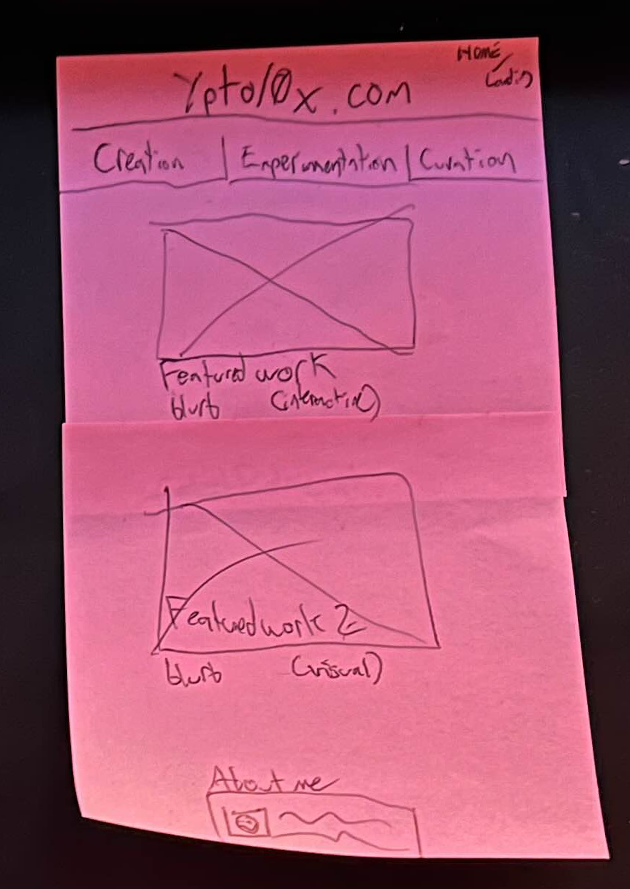 Home/
Landing
Ypto10x.com
Creation | Experimentation | Curation
Featured work
blurb (interactive)
Featured work 2
blurb (visual)
About me